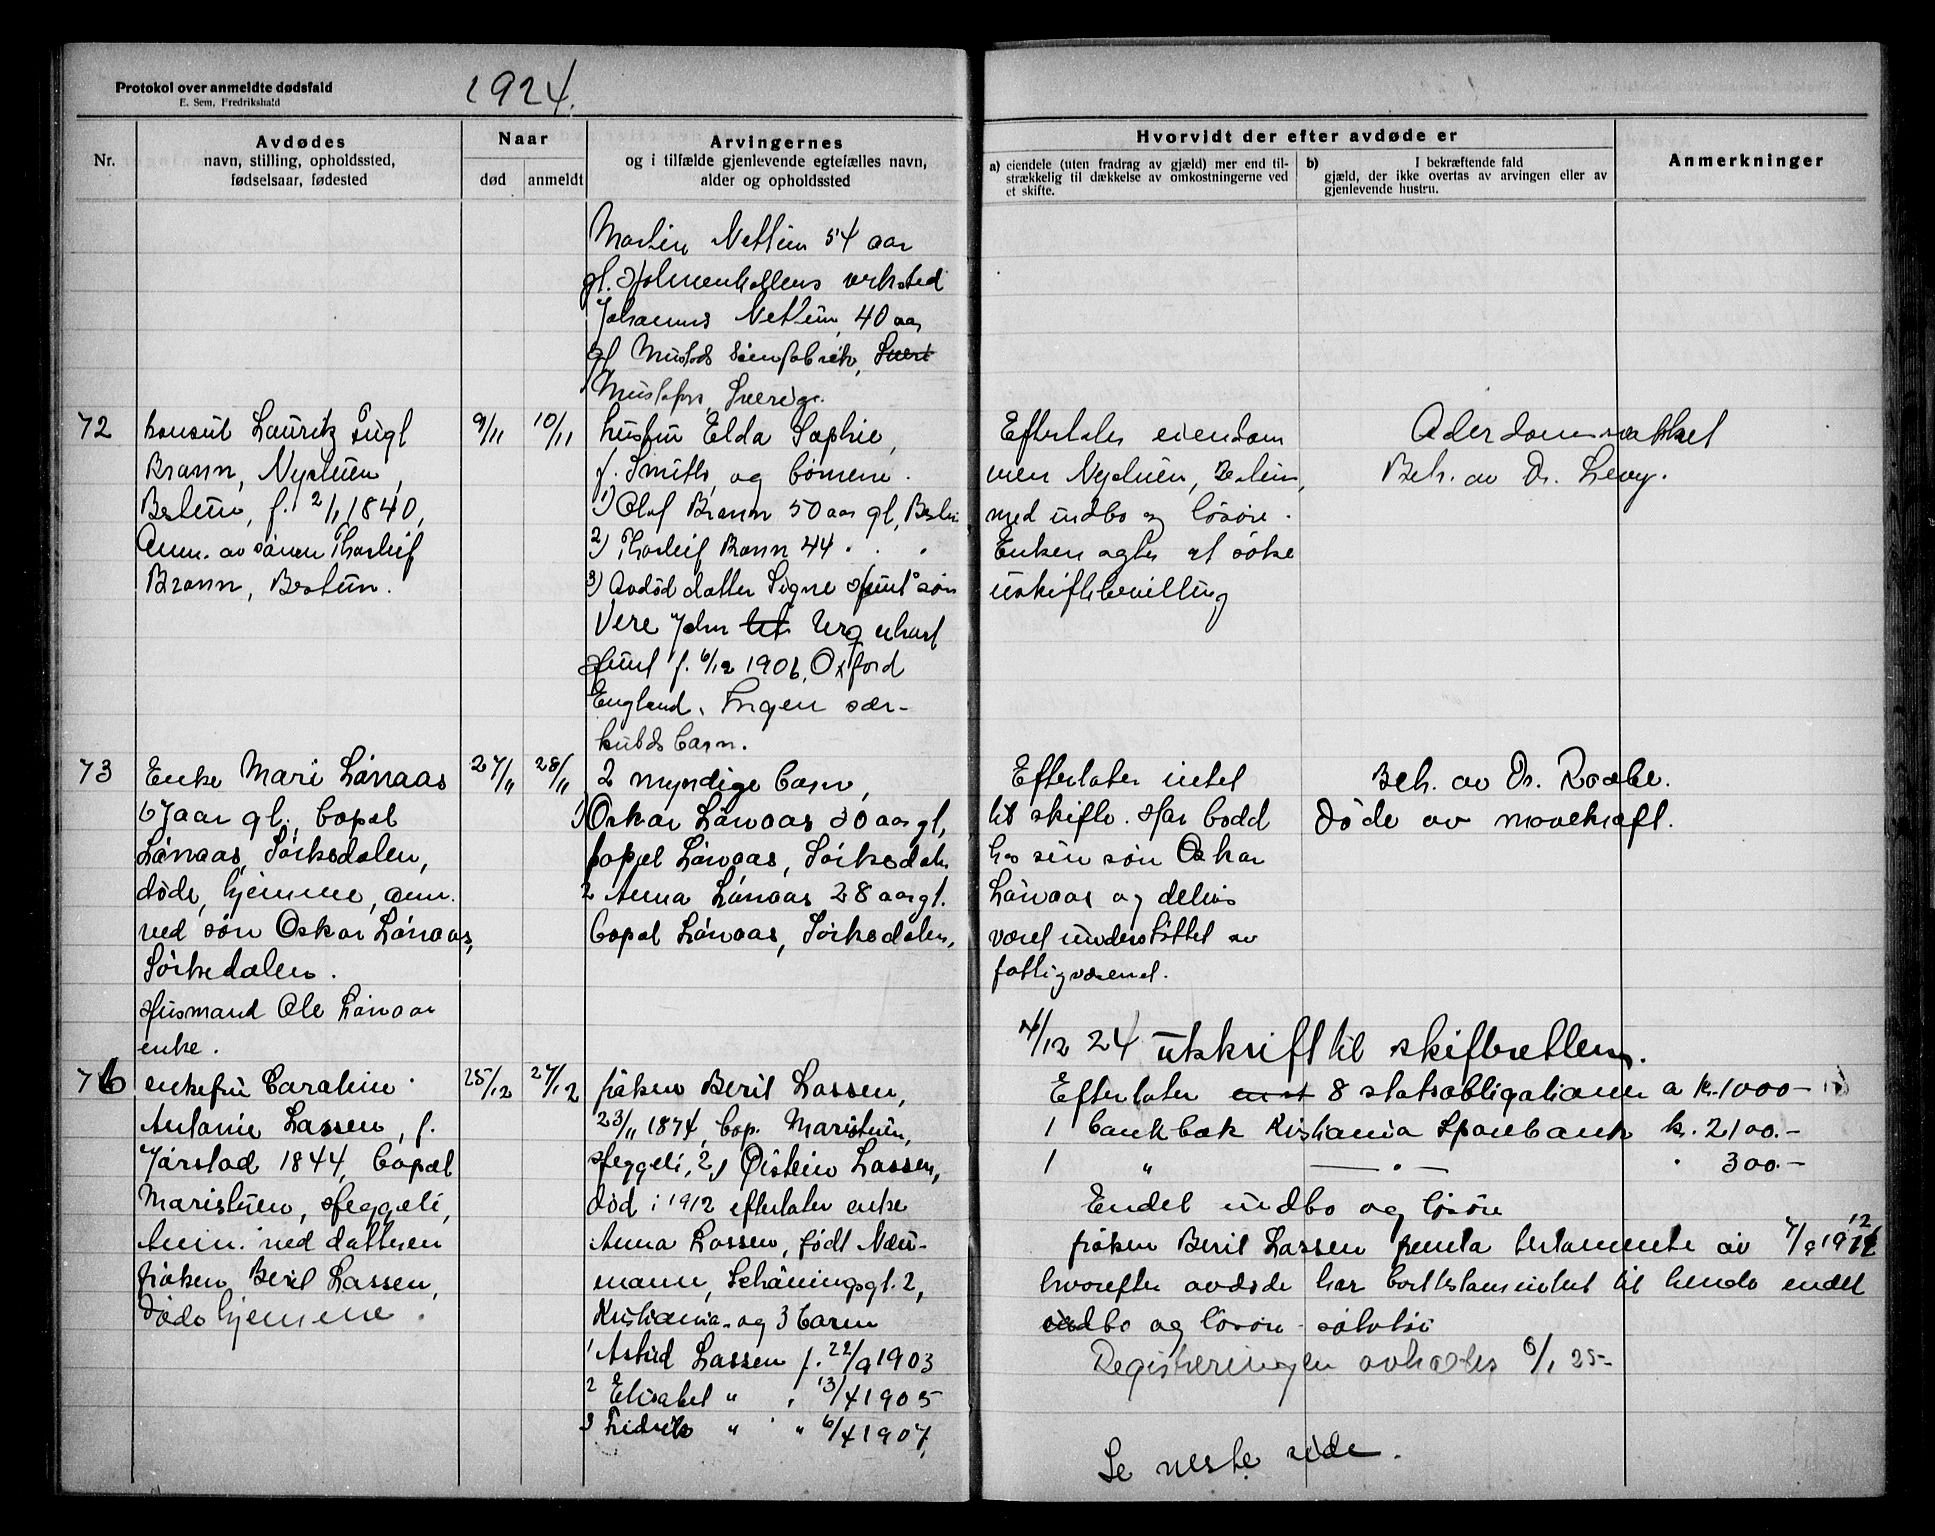 Protokol over anmeldte dødsfald
E. Sem, Fredrikshald
1924.
Nr.
Avdødes
navn, stilling, opholdssted,
fødselsaar, fødested
Naar
død
anmeldt
Arvingernes
og i tilfælde gjenlevende egtefælles navn,
alder og opholdssted
Hvorvidt der efter avdøde er
a) eiendele (uten fradrag av gjæld) mer end til-
strækkelig til dækkelse av omkostningerne ved
et skifte.
b) I bekræftende fald
gjæld, der ikke overtas av arvingen eller av
gjenlevende hustru.
Anmerkninger
Martin Nettum 54 aar
gl. Holmenkollens verksted
Johannes Nettum, 40 aar
gl Mustads
Mustafors, Sverige.
72
konsul Lauritz
Brann, Nystuen,
Bestun, f. 2/1 1840,
Anm. av sønnen Thorleif
Brann, Bestun.
9/11
10/11
hustru Elda Sophie,
f. Smith, og børnene.
1) Olaf Brann 50 aar gl, Bestun
2) Thorleif Brann 44 " "
3) Avdød datter Signe Hunt's søn
Vere John Urquhart
Hunt f. 6/12 1906, Oxford
England. Ingen sær-
kulds barn.
Efterlater eiendom
men Nystuen, Bestun,
med indbo og løsøre.
Enken agter at søke
uskiftebevilling
Alderdomssvakket
Beh. av Dr. Levy.
73
Enke Mari Lønaas
67 aar gl. bopæl
Lønaas, Sørkedalen,
døde, hjemme, anm.
ved søn Oskar Lønaas,
Sørkedalen.
Husmand Ole Lønaas
enke.
27/11
28/11
2 myndige barn,
1) Oskar Lønaas 30 aar gl,
bopæl Lønaas, Sørkedalen
2 Anna Lønaas 28 aar gl.
bopæl Lønaas, Sørkedalen,
Efterlater intet
til skifte. Har bodd
hos sin søn Oskar
Lønaas og delvis
været understøttet av
fattigvæsenet.
Beh. av Dr. Raabe.
Døde av mavekræft.
7/12 24 utskrift til skifteretten.
76
enkefru Caroline
Antonie Lassen, f.
Jarstad 1844, bopæl
Maristuen, Heggeli,
Anm. ved datteren
frøken Beril Lassen,
Døde hjemme.
25/12
27/12
frøken Beril Lassen,
23/11 1874, bop. Maristuen,
Heggeli, 2) Øistein Lassen,
død i 1912 efterlater enke
Anna Lassen, født Neu-
mann, Schøningsgt. 2,
Kristiania og 3 barn
1 Astrid Lassen f. 22/9 1903
2 Elisabet " " 13/4 1905
3 Fredrik " " 6/4 1907,
Efterlater 8 statsobligationer a kr. 1000-
1 bankbok Kristiania Sparebank kr. 2100.-
1 " — " — " 300.-
Endel indbo og løsøre
frøken Beril Lassen testamente av
hvorefter avdøde har borttestamentert til hende endel
indbo og løsøre - sølvtøi
Registreringen avholdes 6/1 25-
Se neste side.